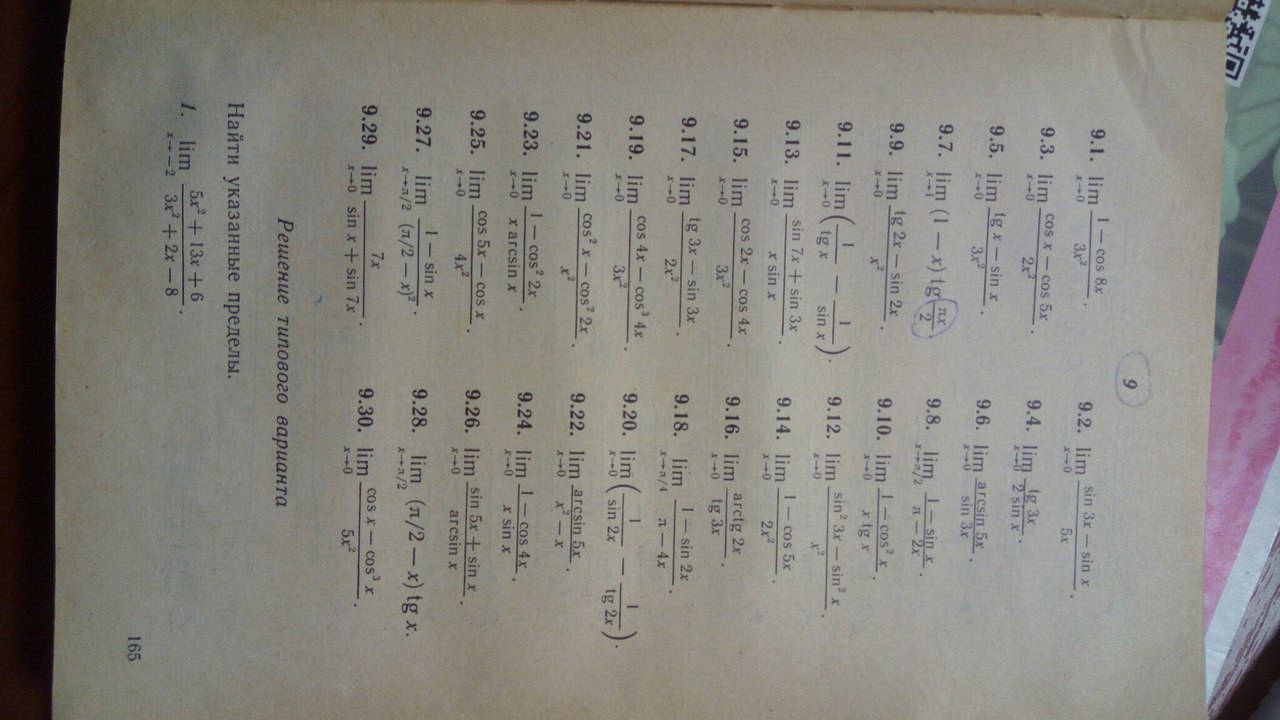 9
9.1. lim x→0 (1 − cos 8x)/(3x²). 9.2. lim x→0 (sin 3x − sin x)/(5x).
9.3. lim x→0 (cos x − cos 5x)/(2x²). 9.4. lim x→0 (tg 3x)/(2 sin x).
9.5. lim x→0 (tg x − sin x)/(3x²). 9.6. lim x→0 (arcsin 5x)/(sin 3x).
9.7. lim x→1 (1 − x) tg (πx)/2. 9.8. lim x→π/2 (1 − sin x)/(π − 2x).
9.9. lim x→0 (tg 2x − sin 2x)/(x²). 9.10. lim x→0 (1 − cos² x)/(x tg x).
9.11. lim x→0 (1/(tg x) − 1/(sin x)). 9.12. lim x→0 (sin² 3x − sin² x)/(x²).
9.13. lim x→0 (sin 7x + sin 3x)/(x sin x). 9.14. lim x→0 (1 − cos 5x)/(2x²).
9.15. lim x→0 (cos 2x − cos 4x)/(3x²). 9.16. lim x→0 (arctg 2x)/(tg 3x).
9.17. lim x→0 (tg 3x − sin 3x)/(2x²). 9.18. lim x→π/4 (1 − sin 2x)/(π − 4x).
9.19. lim x→0 (cos 4x − cos³ 4x)/(3x²). 9.20. lim x→0 (1/(sin 2x) − 1/(tg 2x)).
9.21. lim x→0 (cos² x − cos² 2x)/(x²). 9.22. lim x→0 (arcsin 5x)/(x² − x).
9.23. lim x→π/2 (1 − cos² 2x)/(x arcsin x). 9.24. lim x→0 (1 − cos 4x)/(x sin x).
9.25. lim x→0 (cos 5x − cos x)/(4x²). 9.26. lim x→0 (sin 5x + sin x)/(arcsin x).
9.27. lim x→π/2 (1 − sin x)/(π/2 − x)². 9.28. lim x→π/2 (π/2 − x) tg x.
9.29. lim x→0 (7x)/(sin x + sin 7x). 9.30. lim x→0 (cos x − cos³ x)/(5x²).
Решение типового варианта
Найти указанные пределы.
1. lim x→−2 (5x² + 13x + 6)/(3x² + 2x − 8).
165